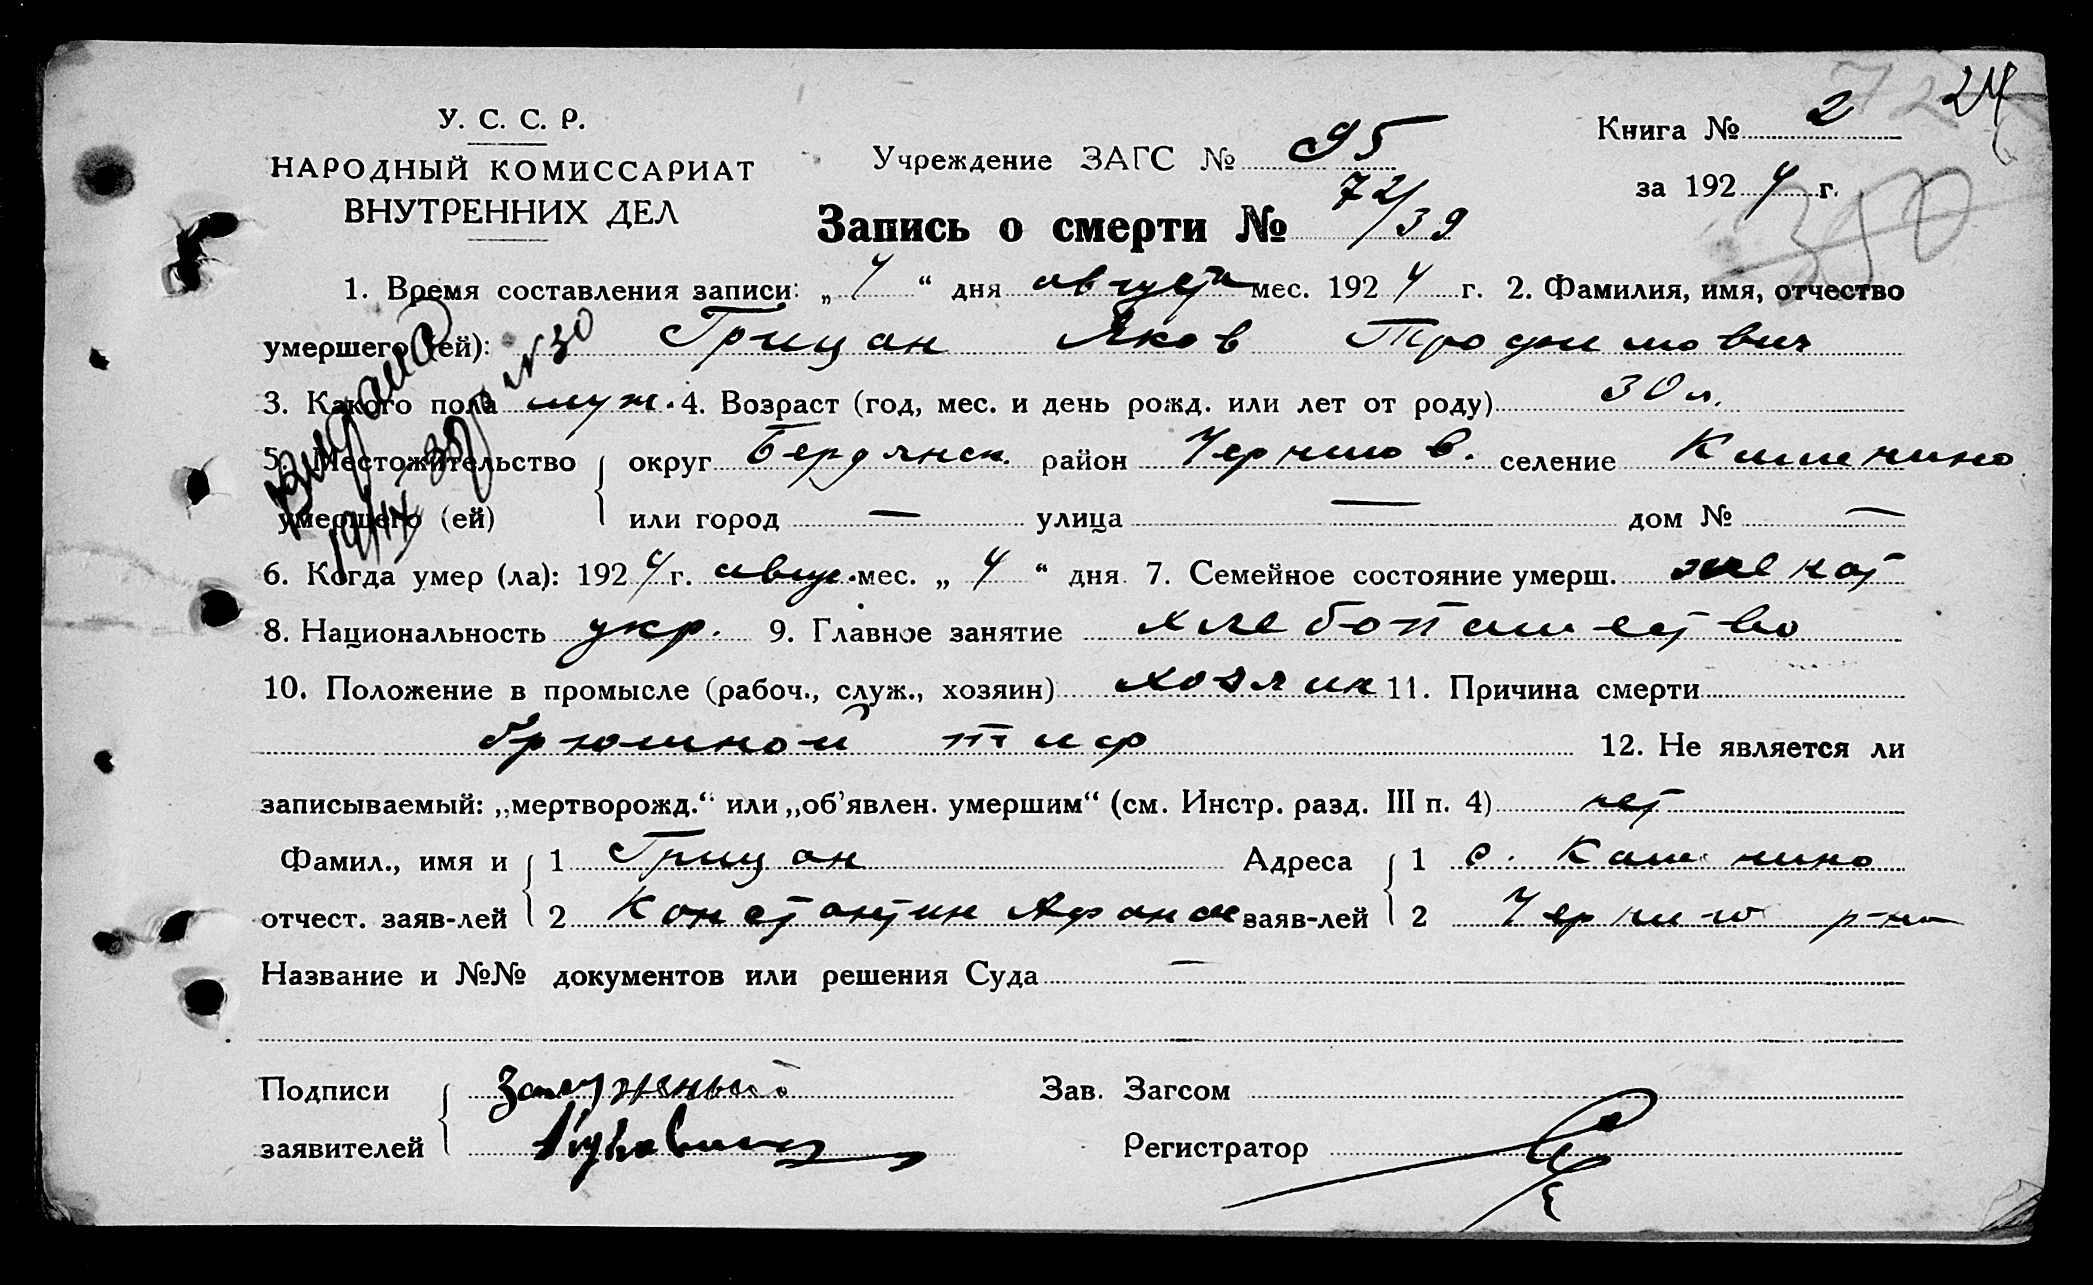 У. С. С. Р.
НАРОДНЫЙ КОМИССАРИАТ
ВНУТРЕННИХ ДЕЛ
Учреждение ЗАГС № 95
Книга № 2
24
за 1924 г.
350
Запись о смерти № 72/39
1. Время составления записи: „ 4 “ дня августа мес. 1924 г. 2. Фамилия, имя, отчество
умершего (ей): Грицан Яков Трофимович
3. Какого пола муж. 4. Возраст (год, мес. и день рожд. или лет от роду) 30 л.
5. Местожительство округ Бердянск. район Черниов. селение
умершего (ей) или город — улица — дом № —
6. Когда умер (ла): 1924 г. авгус. мес. „ 4 “ дня. 7. Семейное состояние умерш. женат
8. Национальность укр. 9. Главное занятие хлебопашество
10. Положение в промысле (рабоч., служ., хозяин) хозяин 11. Причина смерти
брюшной тиф 12. Не является ли
записываемый: „мертворожд.“ или „об’явлен. умершим“ (см. Инстр. разд. III п. 4) нет
Фамил., имя и 1 Грицан Адреса 1 с.
отчест. заяв-лей 2 Константин Афанас заяв-лей 2 р-на
Название и №№ документов или решения Суда —
Подписи Залужный Зав. Загсом
заявителей Регистратор